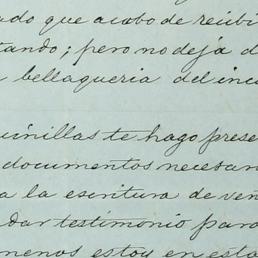 ado que acabo de recibi
tando; pero no deja d
bellaqueria del inc
uinillas te hago prese
documentos necesar
a la escritura de ven
dar testimonio para
menos estoy en esta